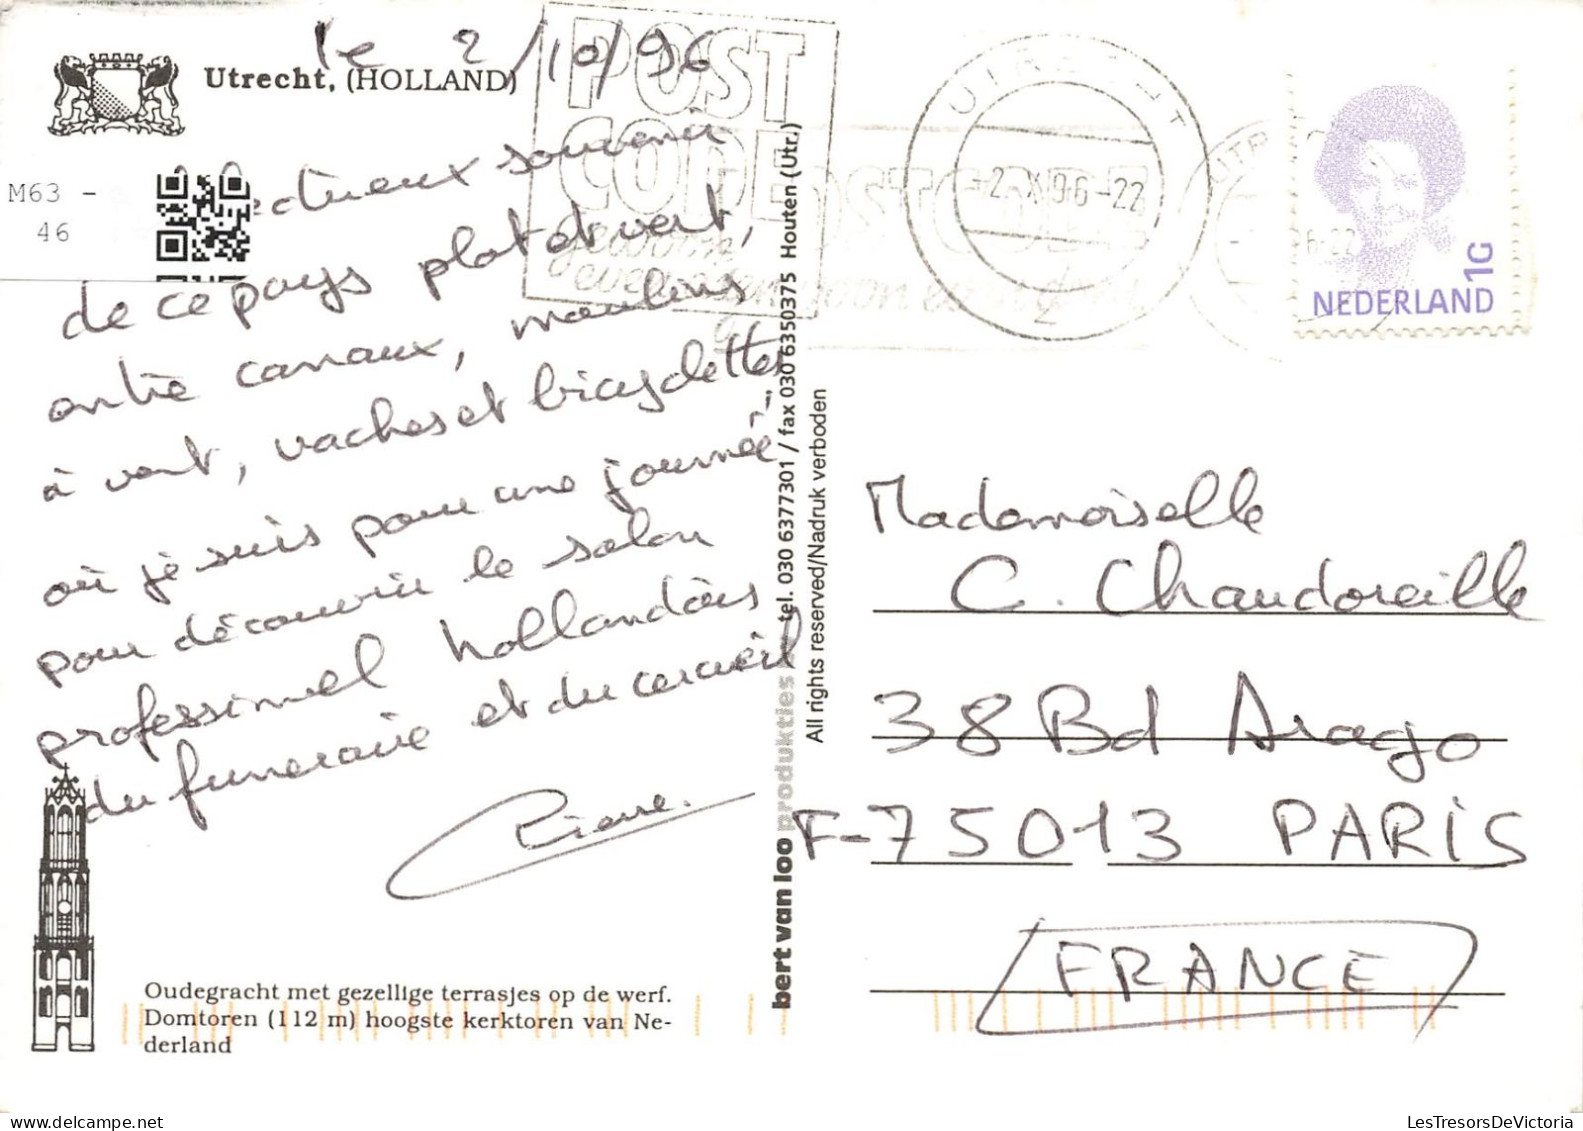 le 2/10/96
Utrecht, (HOLLAND)
M63 -
46
souvenir
de ce pays plat et vert,
entre canaux, moulins
à vent, vaches et bicyclettes
où je suis pour une journée,
pour découvrir le salon
professionnel hollandais
du funéraire et du cercueil
Oudegracht met gezellige terrasjes op de werf.
Domtoren (112 m) hoogste kerktoren van Ne-
derland
bert van loo produkties
tel. 030 6377301 / fax 030 6350375 Houten (Utr.)
All rights reserved/Nadruk verboden
POST
CODE
gewoon
UTRECHT
-2.X.96-22
1G
NEDERLAND
Mademoiselle
C. Chaudoreille
38 Bd Arago
F-75013 PARIS
FRANCE
LesTresorsDeVictoria
LesTresorsDeVictoria.com